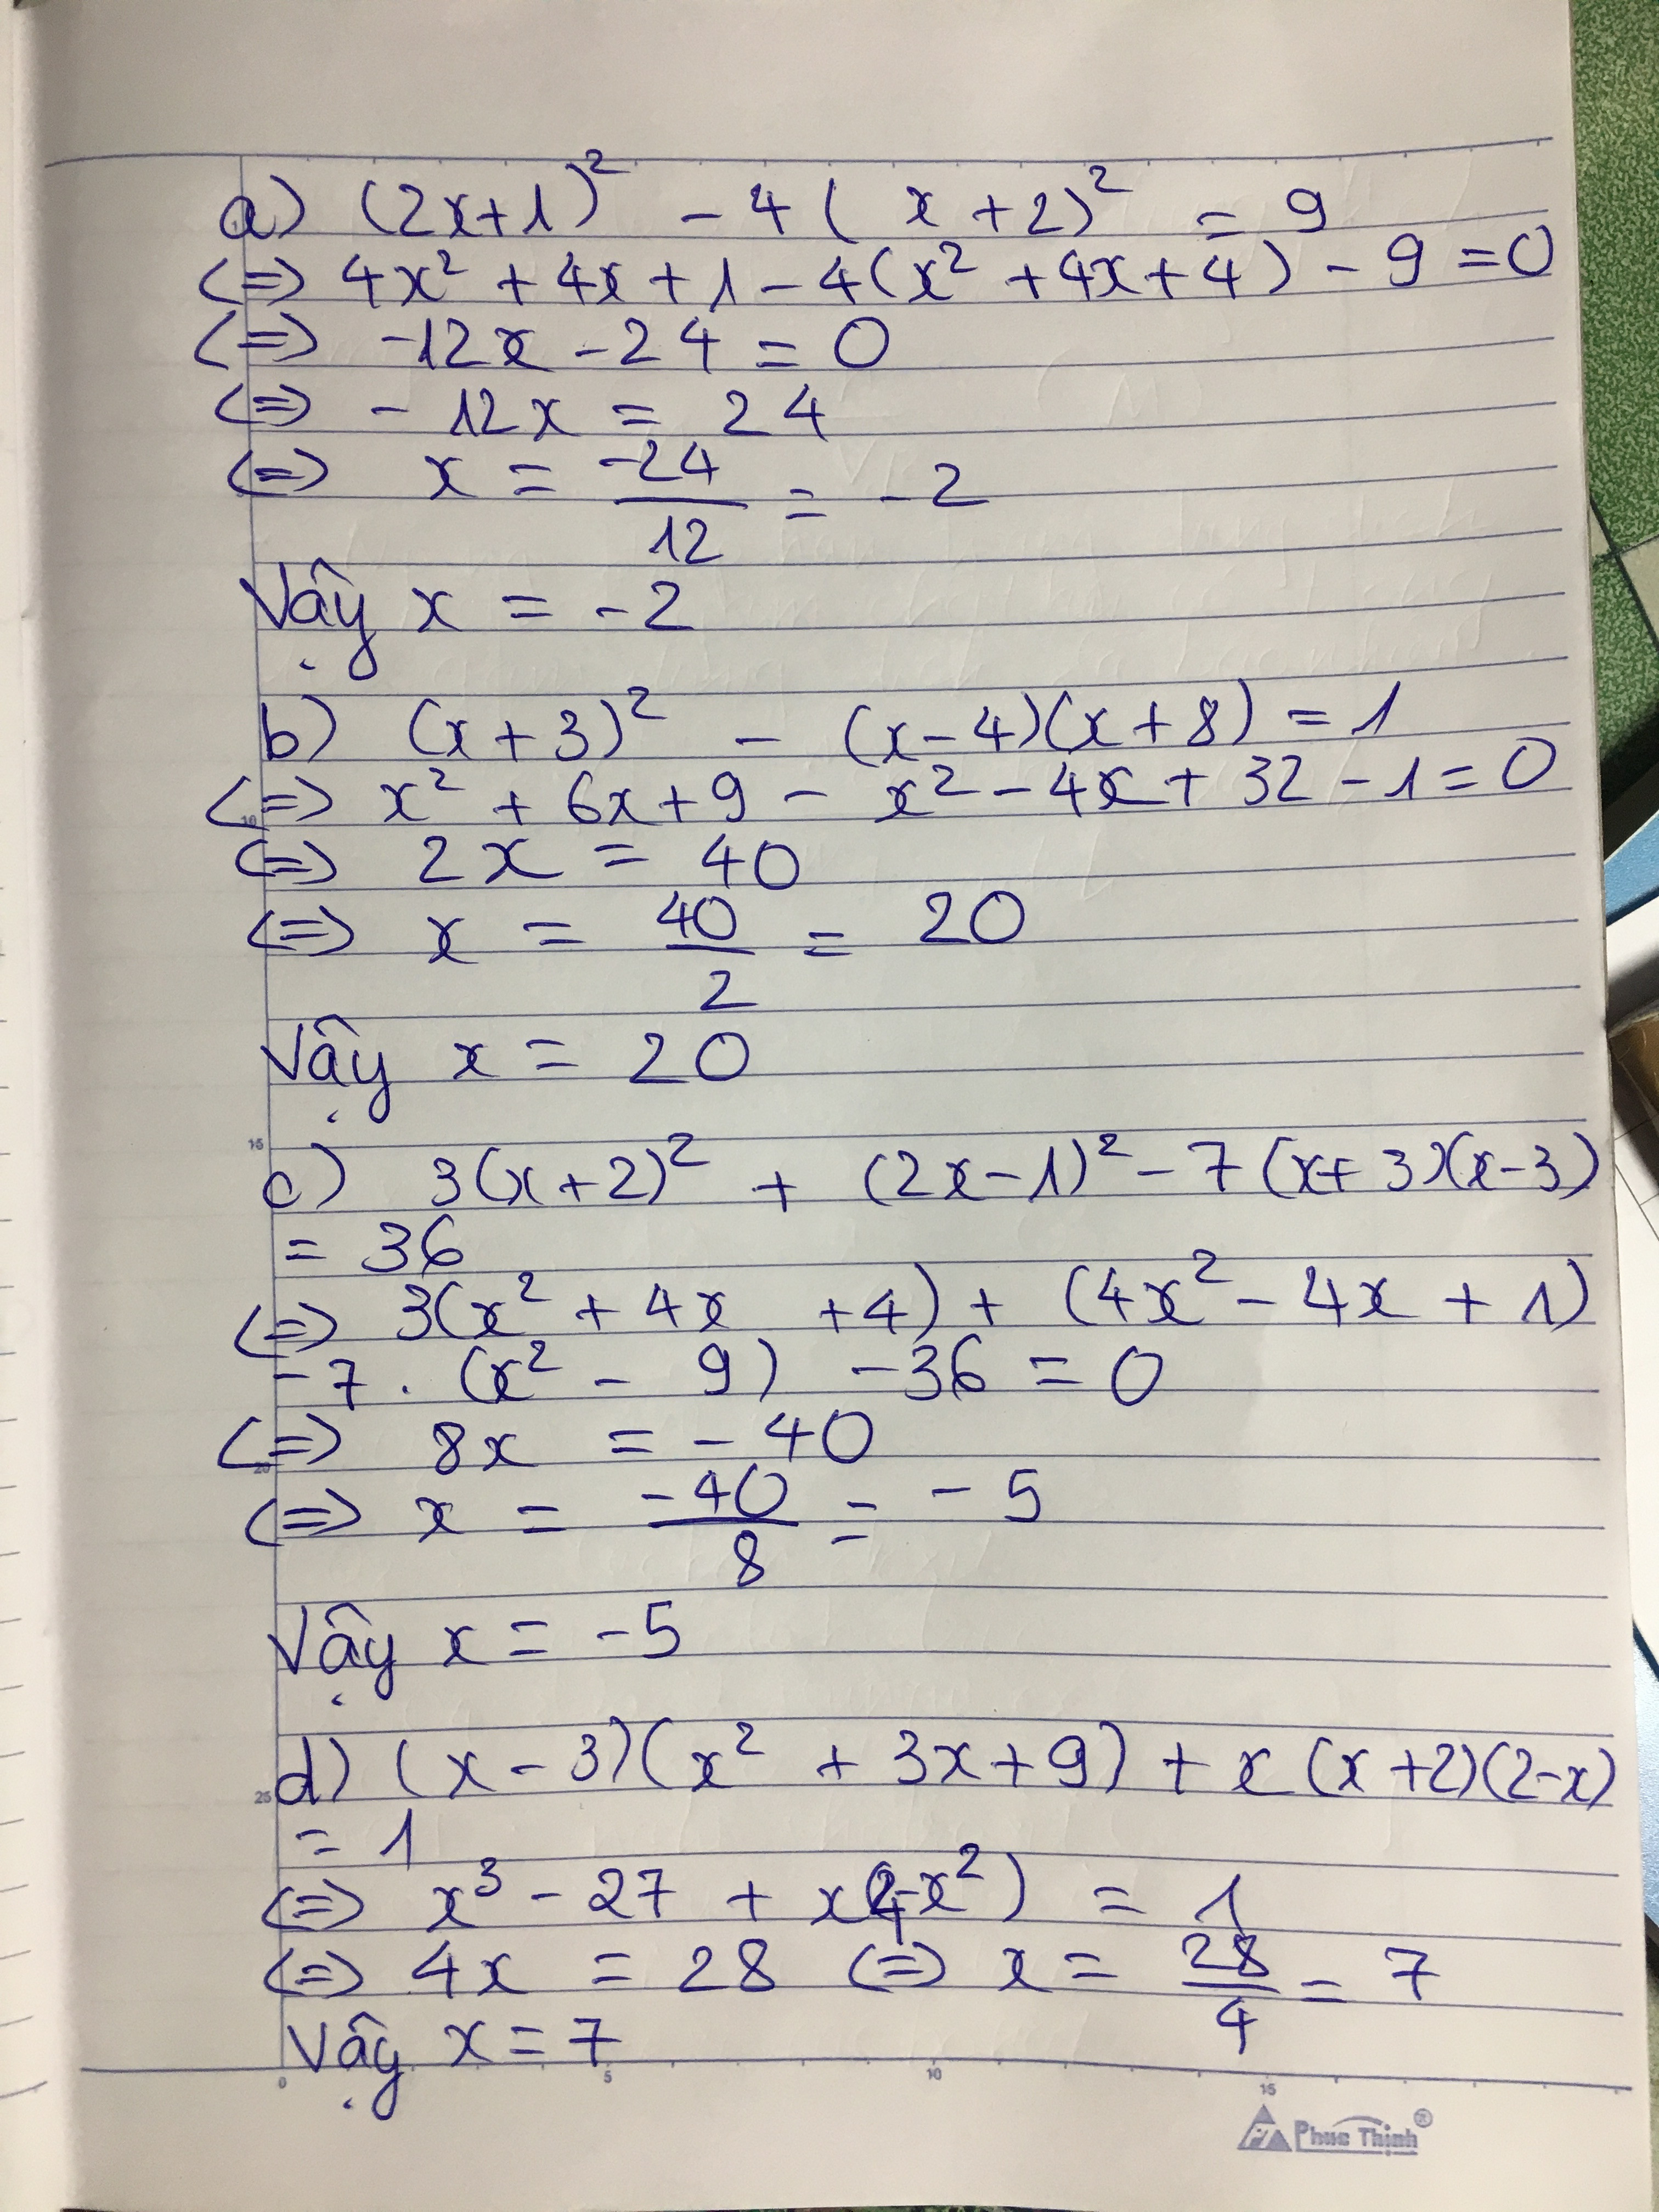 a) (2x+1)² - 4( x+2)² = 9
<=> 4x² + 4x + 1 - 4(x² + 4x + 4) - 9 = 0
<=> -12x - 24 = 0
<=> - 12x = 24
<=> x = -24/12 = -2
Vậy x = -2
b) (x+3)² - (x-4)(x+8) = 1
<=> x² + 6x + 9 - x² - 4x + 32 - 1 = 0
<=> 2x = 40
<=> x = 40/2 = 20
Vậy x = 20
c) 3(x+2)² + (2x-1)² - 7(x+3)(x-3)
= 36
<=> 3(x² + 4x +4) + (4x² - 4x + 1)
-7 . (x² - 9) - 36 = 0
<=> 8x = - 40
<=> x = -40/8 = -5
Vậy x = -5
d) (x-3)(x² + 3x+9) + x(x+2)(2-x)
= 1
<=> x³ - 27 + x(4-x²) = 1
<=> 4x = 28 <=> x = 28/4 = 7
Vậy x = 7
10
15
20
25
0 5 10 15
Phuc Thịnh®